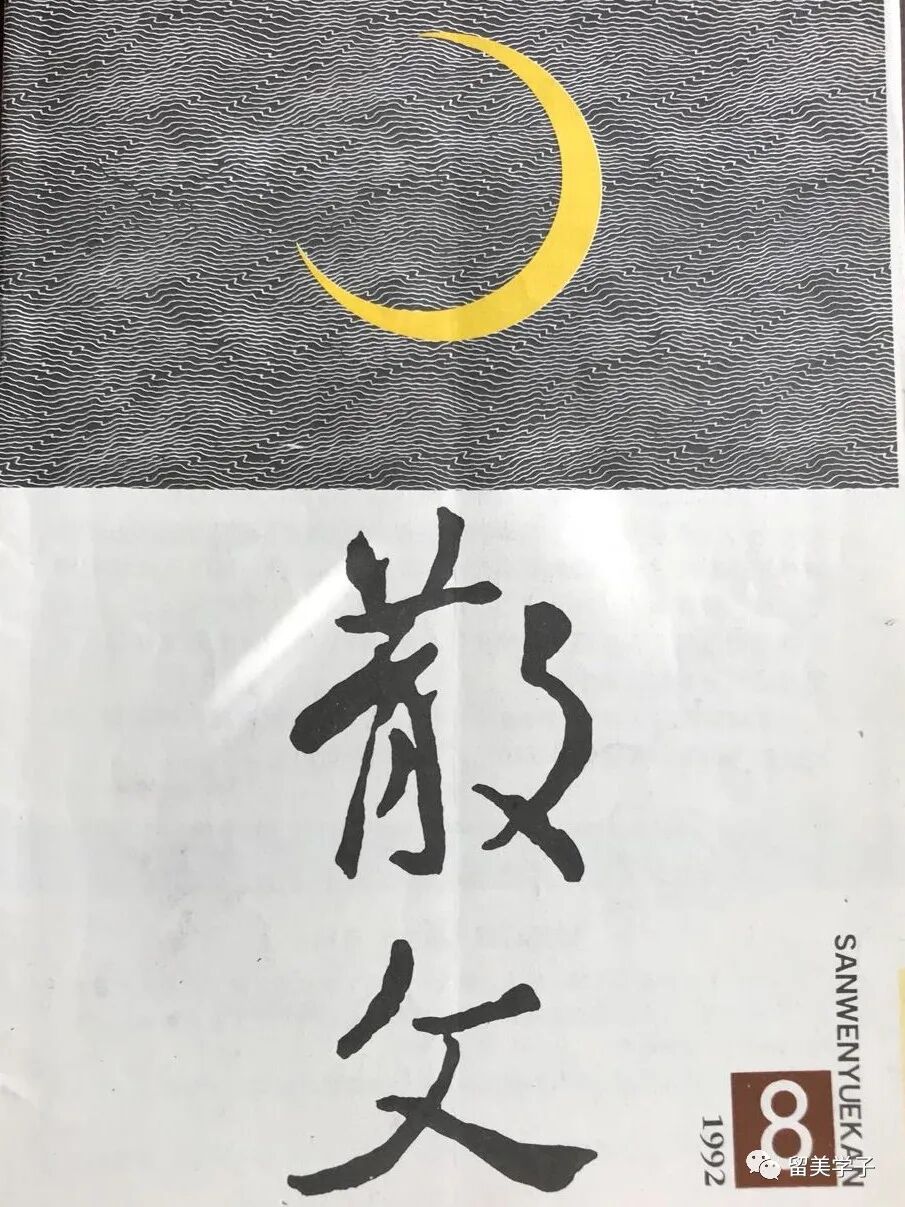 散文
SANWENYUEKAN
8
1992
留美学子